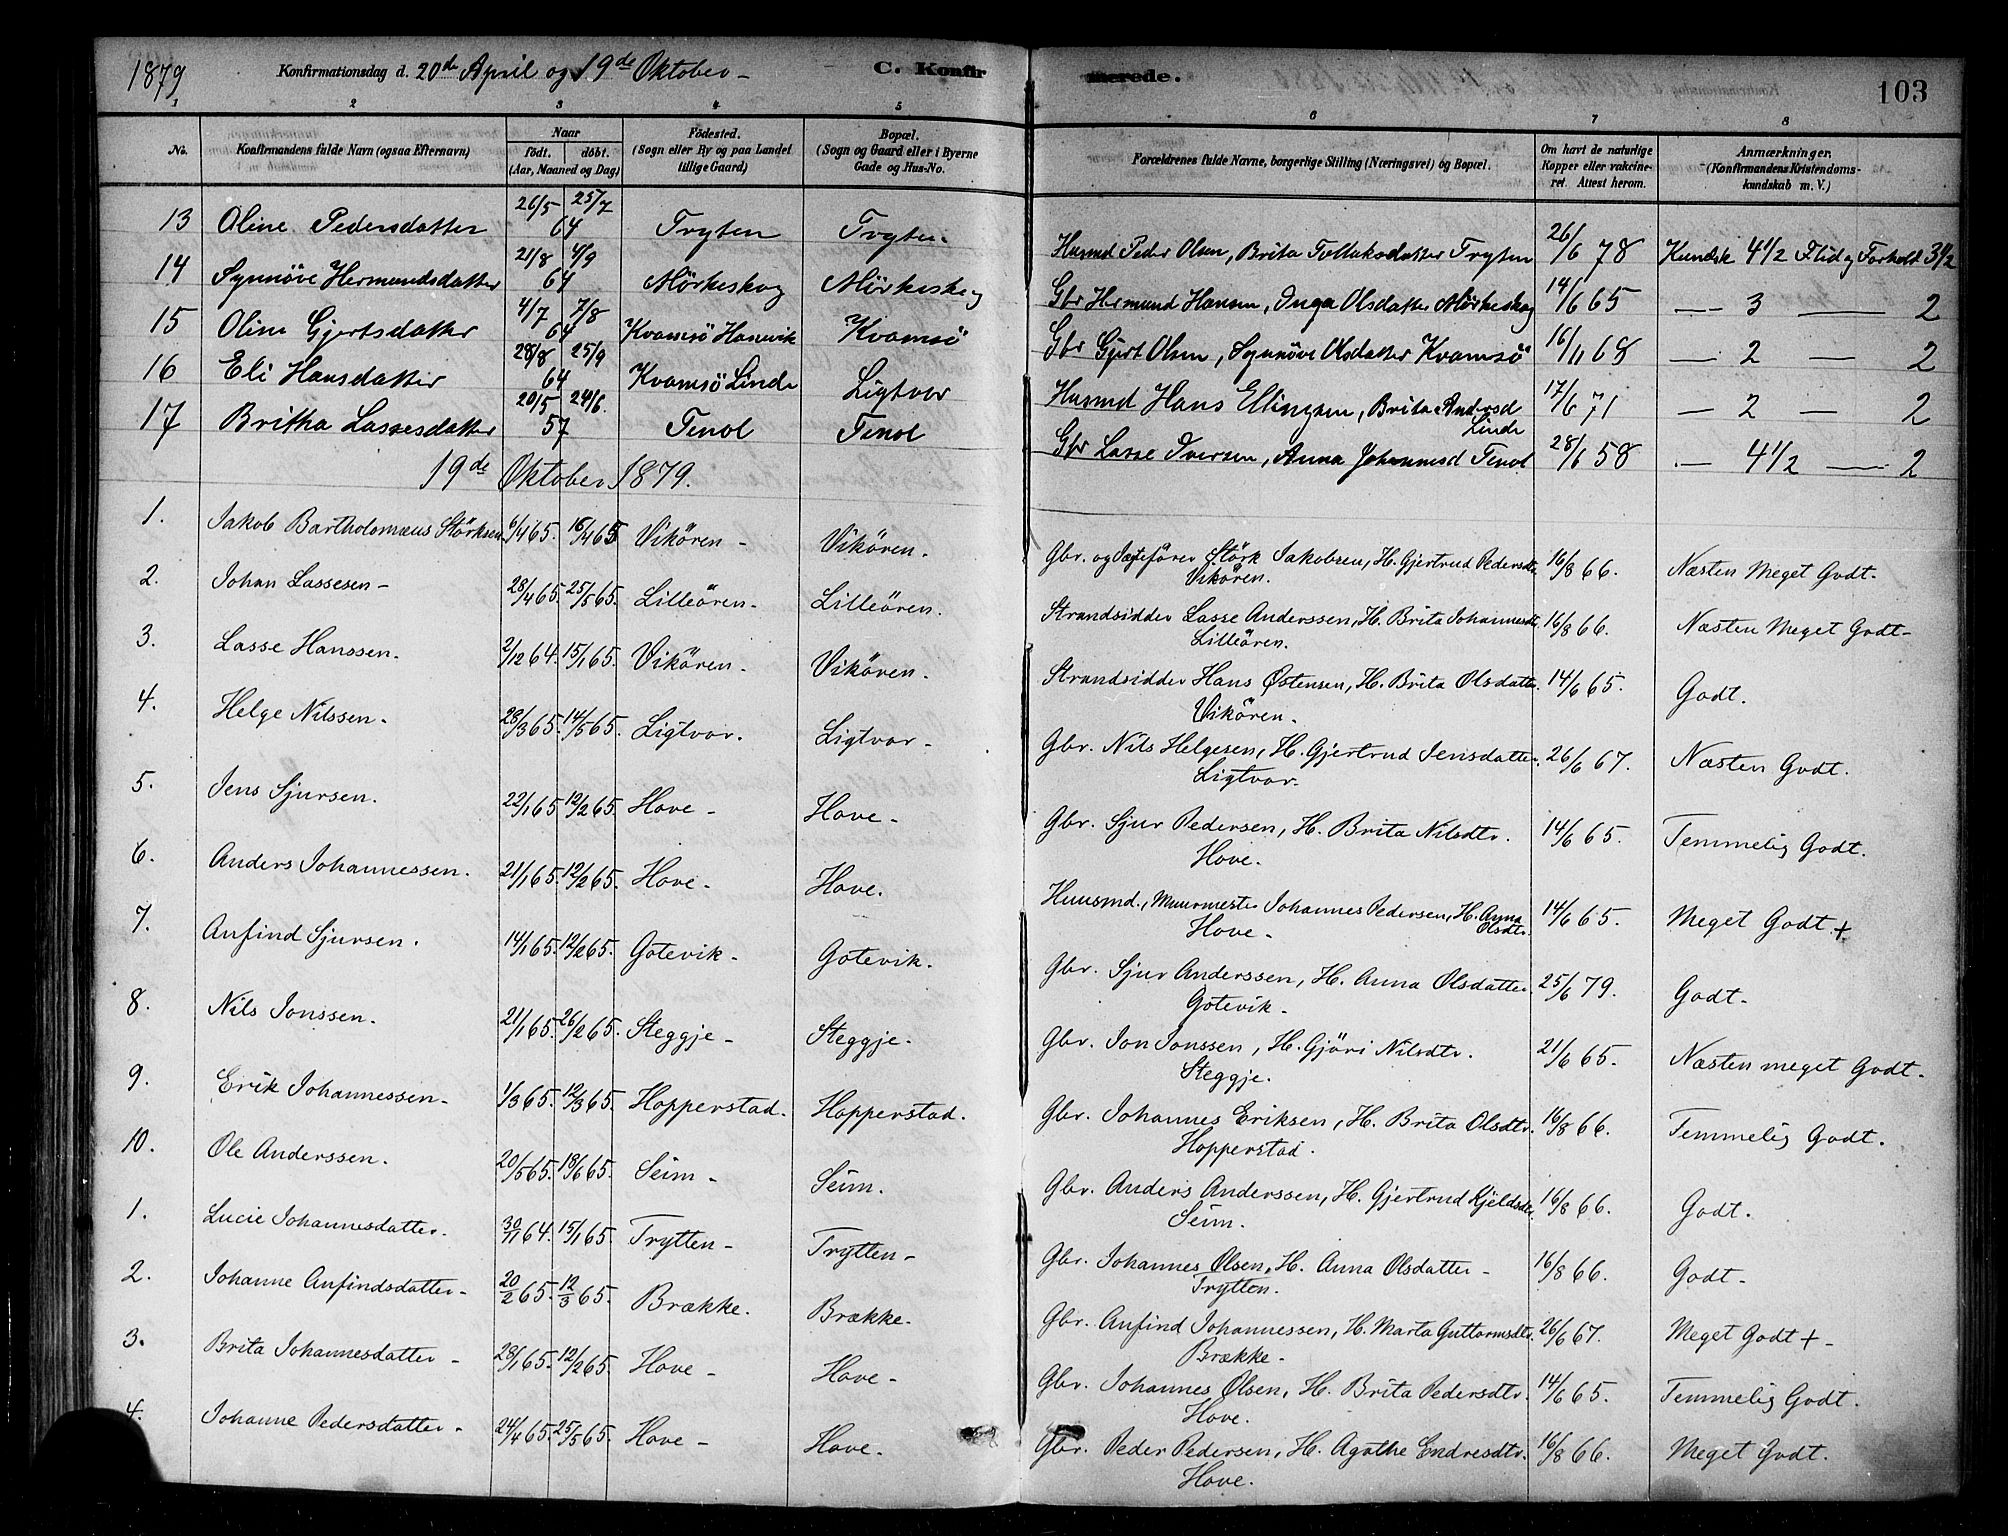 1879 Konfirmationsdag d. 20de April og 19de Oktober – C. Konfirmerede. 103
1 2 3 4 5 6 7 8
No. Konfirmandens fulde Navn (ogsaa Efternavn) Naar født. døbt. (Aar, Maaned og Dag) Fødested. (Sogn eller By og paa Landet tillige Gaard) Bopæl. (Sogn og Gaard eller i Byerne Gade og Hus-No. Forældrenes fulde Navne, borgerlige Stilling (Næringsvei) og Bopæl. Om havt de naturlige Kopper eller vakcineret. Attest herom. Anmærkninger. (Konfirmandens Kristendomskundskab m. V.)
13 Oline Pedersdatter 26/5 25/7 64 Tryten Tryten. Husmd Peder Olsen, Brita Tollaksdatter Tryten 26/6 78 Kundsk 4½ Flid og Forhold 3½
14 Synnöve Hermundsdatter 21/8 4/9 64 Mörkeskog Mörkeskog Gbr Hermund Hansen, Inga Olsdatter Mörkeskog 14/6 65 — 3 — 2
15 Oline Gjertsdatter 4/7 7/8 64 Kvamsö Hanevik Kvamsö Gbr Gjert Olsen, Synnöve Olsdatter Kvamsö 16/11 68 — 2 — 2
16 Eli Hansdatter 28/8 25/9 64 Kvamsö Linde Ligtvor Husmd Hans Ellingsen, Brita Andersd Linde 17/6 71 — 2 — 2
17 Britha Lassesdatter 20/5 24/6. 57 Tenol Tenol Gbr Lasse Iversen, Anna Johannesd Tenol 28/6 58 — 4½ — 2
19de Oktober 1879.
1. Jakob Bartholomæus Störksen 6/4 65. 16/4 65 Vikören – Vikören. Gbr. og Jægtefører Störk Jakobsen, H. Gjertrud Pedersdtr. Vikören. 16/8 66. Næsten Meget Godt.
2. Johan Lassesen – 28/4 65. 25/5 65. Lilleören. Lilleören. Strandsidder Lasse Anderssen, H. Brita Johannesdtr. Lilleören. 16/8 66. Næsten Meget Godt –
3. Lasse Hanssen. 2/12 64. 15/1 65. Vikören. Vikören. Strandsidder Hans Østensen, H. Brita Olsdatter. Vikören. 14/6 65. Godt.
4. Helge Nilssen. 28/3 65. 14/5 65. Ligtvor. Ligtvor – Gbr. Nils Helgesen, H. Gjertrud Jensdatter. Ligtvor. 26/6 67. Næsten Godt.
5. Jens Sjursen. 22/1 65 12/2 65. Hove – Hove – Gbr. Sjur Pedersen, H. Brita Nilsdtr. Hove. 14/6 65. Temmelig Godt.
6. Anders Johannessen. 21/1 65. 12/2 65. Hove – Hove. Huusmd., Muurmester Johannes Pedersen, H. Anna Olsdtr. Hove – 14/6 65. Meget Godt +
7. Anfind Sjursen. 14/1 65. 12/2 65. Gotevik – Gotevik. Gbr. Sjur Anderssen, H. Anna Olsdatter. Gotevik – 25/6 79. Godt –
8. Nils Jonssen. 21/1 65. 26/2 65. Steggje – Steggje. Gbr. Jon Jonssen, H. Gjöri Nilsdtr. Steggje. 21/6 65. Næsten meget Godt.
9. Erik Johannessen – 1/3 65. 12/3 65. Hopperstad. Hopperstad. Gbr. Johannes Eriksen, H. Brita Olsdtr. Hopperstad. 16/8 66. Temmelig Godt.
10. Ole Anderssen. 20/5 65. 18/6 65. Seim – Seim. Gbr. Anders Anderssen, H. Gjertrud Kjeldsdtr. Seim. 16/8 66. Godt.
1. Lucie Johannesdatter. 30/11 64. 15/1 65. Trytten – Trytten – Gbr. Johannes Olsen, H. Anna Olsdatter – Trytten. 16/8 66. Godt –
2. Johanne Anfindsdatter. 20/2 65. 12/3 65. Brække. Brække. Gbr. Anfind Johannessen, H. Marta Guttormsdtr. Brække – 26/6 67. Meget Godt + –
3. Brita Johannesdatter – 28/1 65. 12/2 65. Hove – Hove – Gbr. Johannes Olsen, H. Brita Pedersdtr. Hove. 14/6 65. Temmelig Godt.
4. Johanne Pedersdatter – 24/4 65. 25/5 65. Hove – Hove. Gbr. Peder Pedersen, H. Agathe Endresdtr. Hove. 16/8 66. Meget Godt.